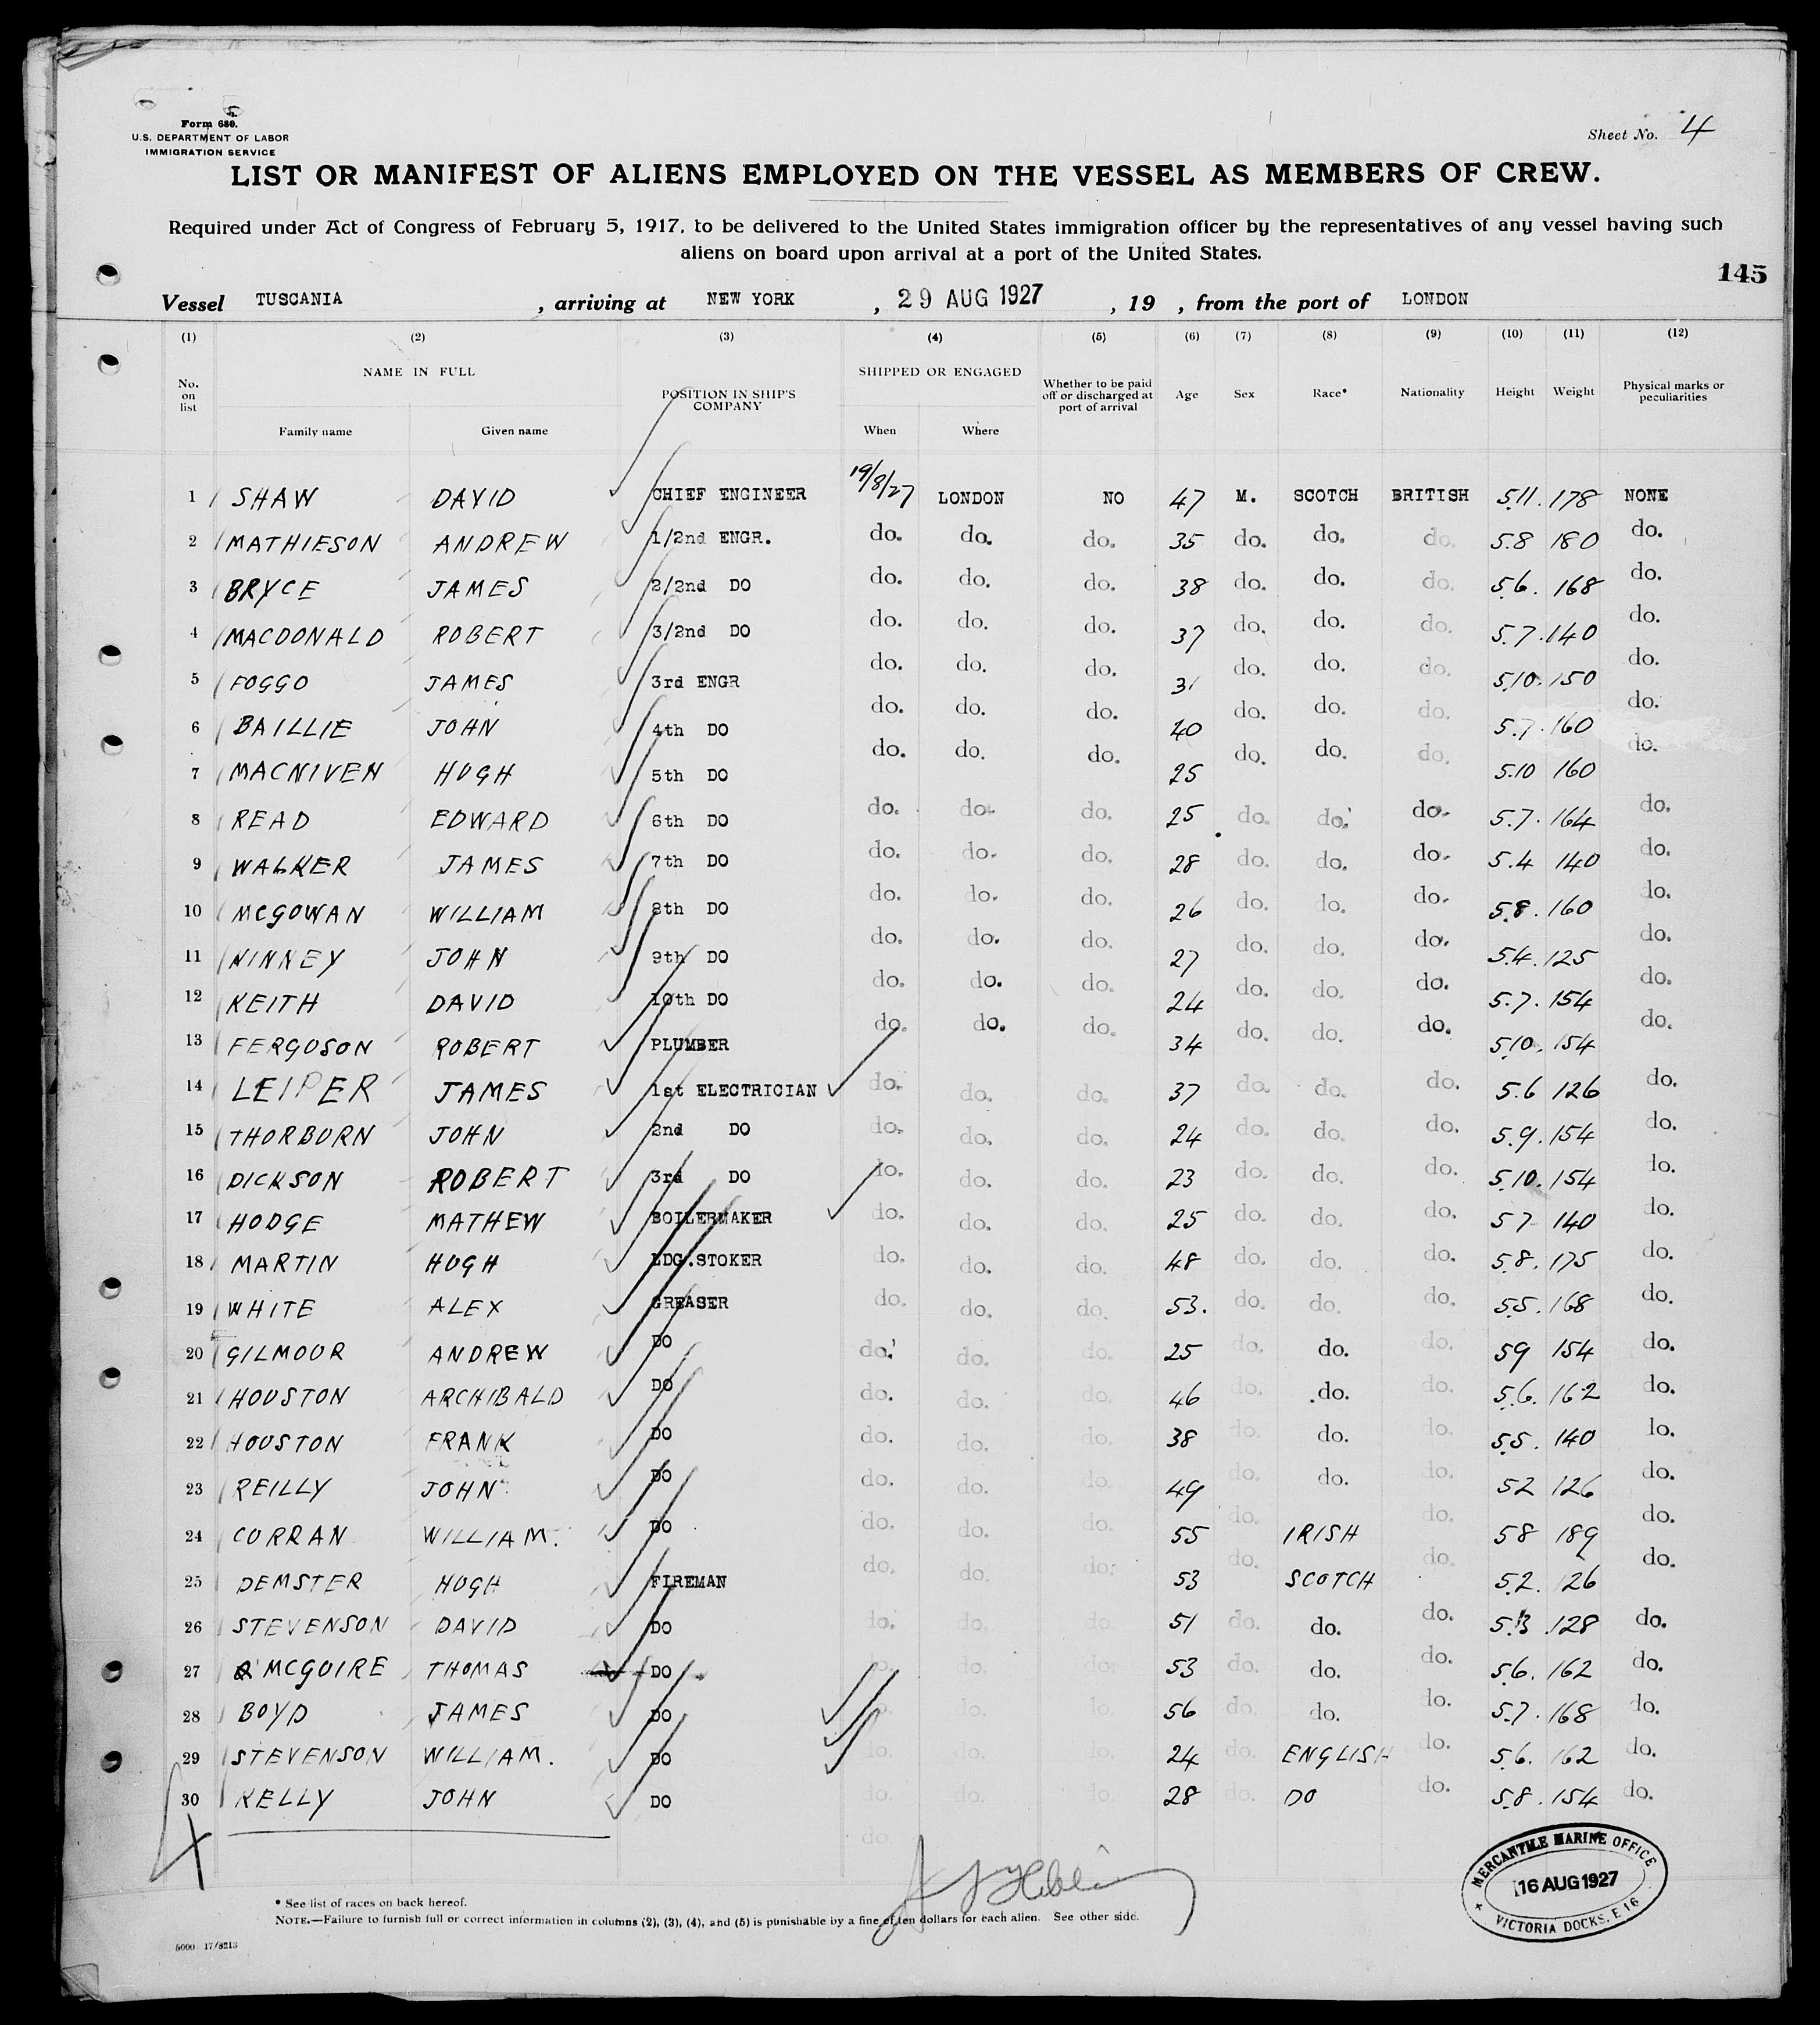 Form 680.
U.S. DEPARTMENT OF LABOR
IMMIGRATION SERVICE
Sheet No. 4
LIST OR MANIFEST OF ALIENS EMPLOYED ON THE VESSEL AS MEMBERS OF CREW.
Required under Act of Congress of February 5, 1917, to be delivered to the United States immigration officer by the representatives of any vessel having such
aliens on board upon arrival at a port of the United States.
145
Vessel TUSCANIA , arriving at NEW YORK , 29 AUG 1927 , 19 , from the port of LONDON
(1) (2) (3) (4) (5) (6) (7) (8) (9) (10) (11) (12)
No. on list NAME IN FULL Family name Given name POSITION IN SHIP'S COMPANY SHIPPED OR ENGAGED When Where Whether to be paid off or discharged at port of arrival Age Sex Race* Nationality Height Weight Physical marks or peculiarities
1 SHAW DAVID CHIEF ENGINEER 19/8/27 LONDON NO 47 M. SCOTCH BRITISH 5.11. 178 NONE
2 MATHIESON ANDREW 1/2nd ENGR. do. do. do. 35 do. do. do. 5.8 180 do.
3 BRYCE JAMES 2/2nd DO do. do. do. 38 do. do. do. 5.6. 168 do.
4 MACDONALD ROBERT 3/2nd DO do. do. do. 37 do. do. do. 5.7. 140 do.
5 FOGGO JAMES 3rd ENGR do. do. do. 31 do. do. do. 5.10. 150 do.
6 BAILLIE JOHN 4th DO do. do. do. 40 do. do. do. 5.7. 160 do.
7 MACNIVEN HUGH 5th DO do. do. do. 25 do. do. do. 5.10 160 do.
8 READ EDWARD 6th DO do. do. do. 25 do. do. do. 5.7. 164 do.
9 WALKER JAMES 7th DO do. do. do. 28 do. do. do. 5.4 140 do.
10 MCGOWAN WILLIAM 8th DO do. do. do. 26 do. do. do. 5.8. 160 do.
11 NINNEY JOHN 9th DO do. do. do. 27 do. do. do. 5.4. 125 do.
12 KEITH DAVID 10th DO do. do. do. 24 do. do. do. 5.7. 154 do.
13 FERGUSON ROBERT PLUMBER do. do. do. 34 do. do. do. 5.10. 154 do.
14 LEIPER JAMES 1st ELECTRICIAN do. do. do. 37 do. do. do. 5.6 126 do.
15 THORBURN JOHN 2nd DO do. do. do. 24 do. do. do. 5.9. 154 do.
16 DICKSON ROBERT 3rd DO do. do. do. 23 do. do. do. 5.10. 154 do.
17 HODGE MATHEW BOILERMAKER do. do. do. 25 do. do. do. 5 7 140 do.
18 MARTIN HUGH LDG.STOKER do. do. do. 48 do. do. do. 5.8. 175 do.
19 WHITE ALEX GREASER do. do. do. 53. do. do. do. 5.5. 168 do.
20 GILMOUR ANDREW DO do. do. do. 25 do. do. do. 5 9 154 do.
21 HOUSTON ARCHIBALD DO do. do. do. 46 do. do. do. 5.6. 162 do.
22 HOUSTON FRANK DO do. do. do. 38 do. do. do. 5.5. 140 do.
23 REILLY JOHN DO do. do. do. 49 do. do. do. 5 2 126 do.
24 CURRAN WILLIAM. DO do. do. do. 55 do. IRISH do. 5 8 189 do.
25 DEMSTER HUGH FIREMAN do. do. do. 53 do. SCOTCH do. 5.2. 126 do.
26 STEVENSON DAVID DO do. do. do. 51 do. do. do. 5.3 128 do.
27 MCGUIRE THOMAS DO do. do. do. 53 do. do. do. 5.6. 162 do.
28 BOYD JAMES DO do. do. do. 56 do. do. do. 5.7. 168 do.
29 STEVENSON WILLIAM. DO do. do. do. 24 do. ENGLISH do. 5.6. 162 do.
30 KELLY JOHN DO do. do. do. 28 do. DO do. 5.8. 154 do.
do
4
MERCANTILE MARINE OFFICE
16 AUG 1927
VICTORIA DOCKS, E 16
* See list of races on back hereof.
NOTE.—Failure to furnish full or correct information in columns (2), (3), (4), and (5) is punishable by a fine of ten dollars for each alien. See other side.
5000 17/8213